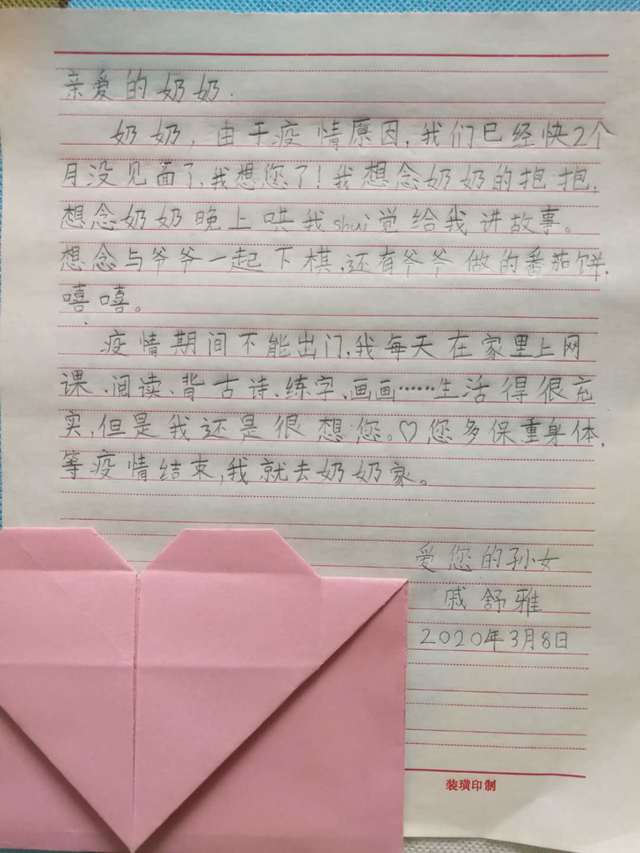 亲爱的奶奶.
奶奶，由于疫情原因，我们已经快2个
月没见面了,我想您了！我想念奶奶的抱抱,
想念奶奶晚上哄我shui觉给我讲故事。
想念与爷爷一起下棋,还有爷爷做的番茄饼,
嘻嘻。
疫情期间不能出门,我每天在家里上网
课、阅读、背古诗、练字、画画……生活得很充
实,但是我还是很想您。♡您多保重身体,
等疫情结束,我就去奶奶家。
爱您的孙女
戚舒雅
2020年3月8日
装璜印制